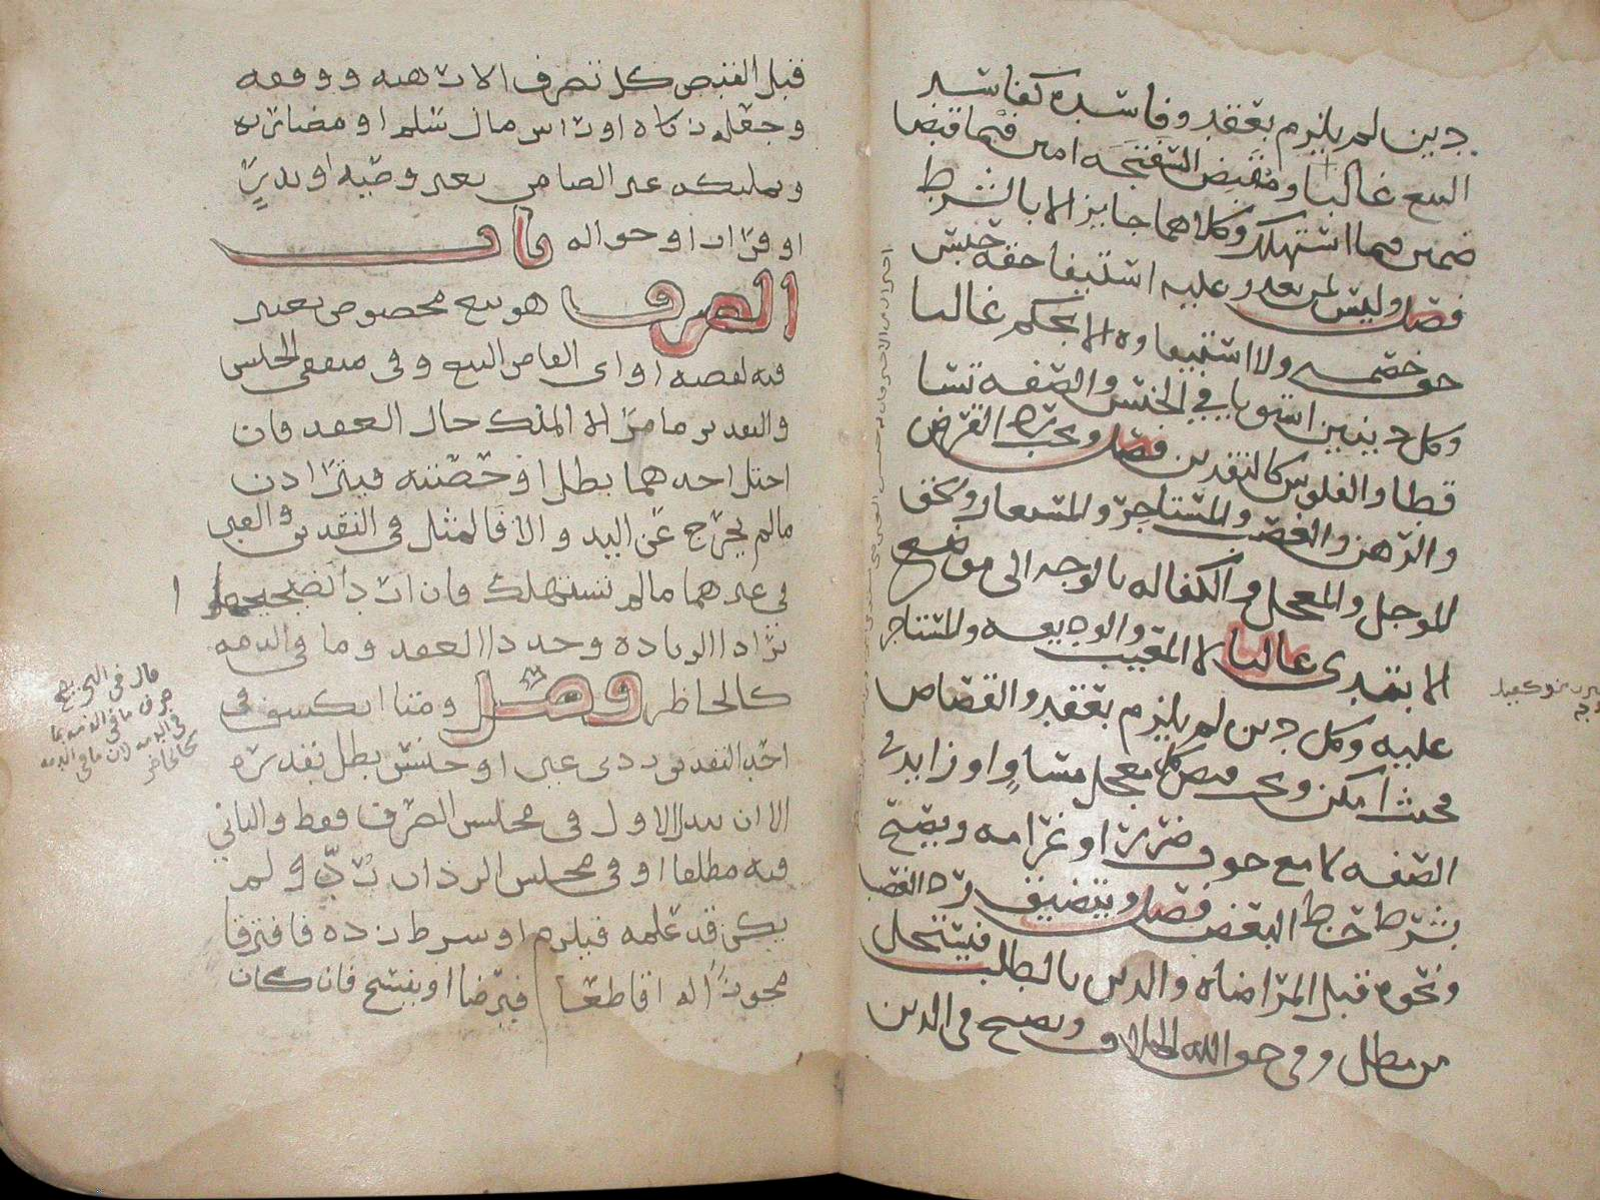 دين لم يلزم بعقد وفاسده كفاسد
البيع غالبا ومقبض السفتجه امين فيما قبض
ضمين فيما استهلك وكلاهما جايز الا بالشرط
فصل وليس لمن تعذر عليه استيفا حقه حبس
حق خصمه ولا استيفاوه الا بحكم غالبا
وكل دينين استويا في الجنس والصفه تساقطا
والفلوس كالنقدين فصل ويجب رد القرض
والرهن والغصب والمستاجر والمستعار والحق
الموجل والمعجل والكفاله بالوجه الى موضع
الابتدى غالبا لا المعيب والوديعه والمستاجر
عليه وكل دين لم يلزم بعقد والقصاص
فحيث امكن ويجب قبض كل معجل مساو او زايد في
الصفه لا مع خوف ضرر او غرامه ويصح
بشرط حط البعض فصل ويتضيق رد الغصب
ونحوه قبل المراضاه والدين بالطلب فيستحل
من مطل وفي حق الله الخلاف ويصح في الدين
قبل القبض كل تصرف الا رهنه ووقفه
وجعله زكاه او راس مال سلم او مضاربه
وتمليكه غير الضامن بغير وصيه او نذر
او اقرار او حواله باب
الصرف هو بيع مخصوص يعتبر
فيه لفظه او اي الفاظ البيع وفي متفقي الجنس
والتقدير ما مر الا الملك حال العقد فان
اختل احدهما بطل او حصته فيترادن
ما لم يخرج عن اليد والا فالمثل في النقدين والعين
في غيرهما ما لم تستهلك فان ارادا تصحيحه
ترادا الزياده وجددا العقد وما في الذمه
كالحاظر فصل ومتا انكشف في
احد النقدين ردي عين او جنس بطل بقدره
الا ان يبدل الاول في مجلس الصرف فقط والثاني
فيه مطلقا او في مجلس الرد ان رد ولم
يكن قد علمه فيلزم او شرط رده فافترقا
مجوزا له اقاطعا فيرضا او يفسخ فان كان